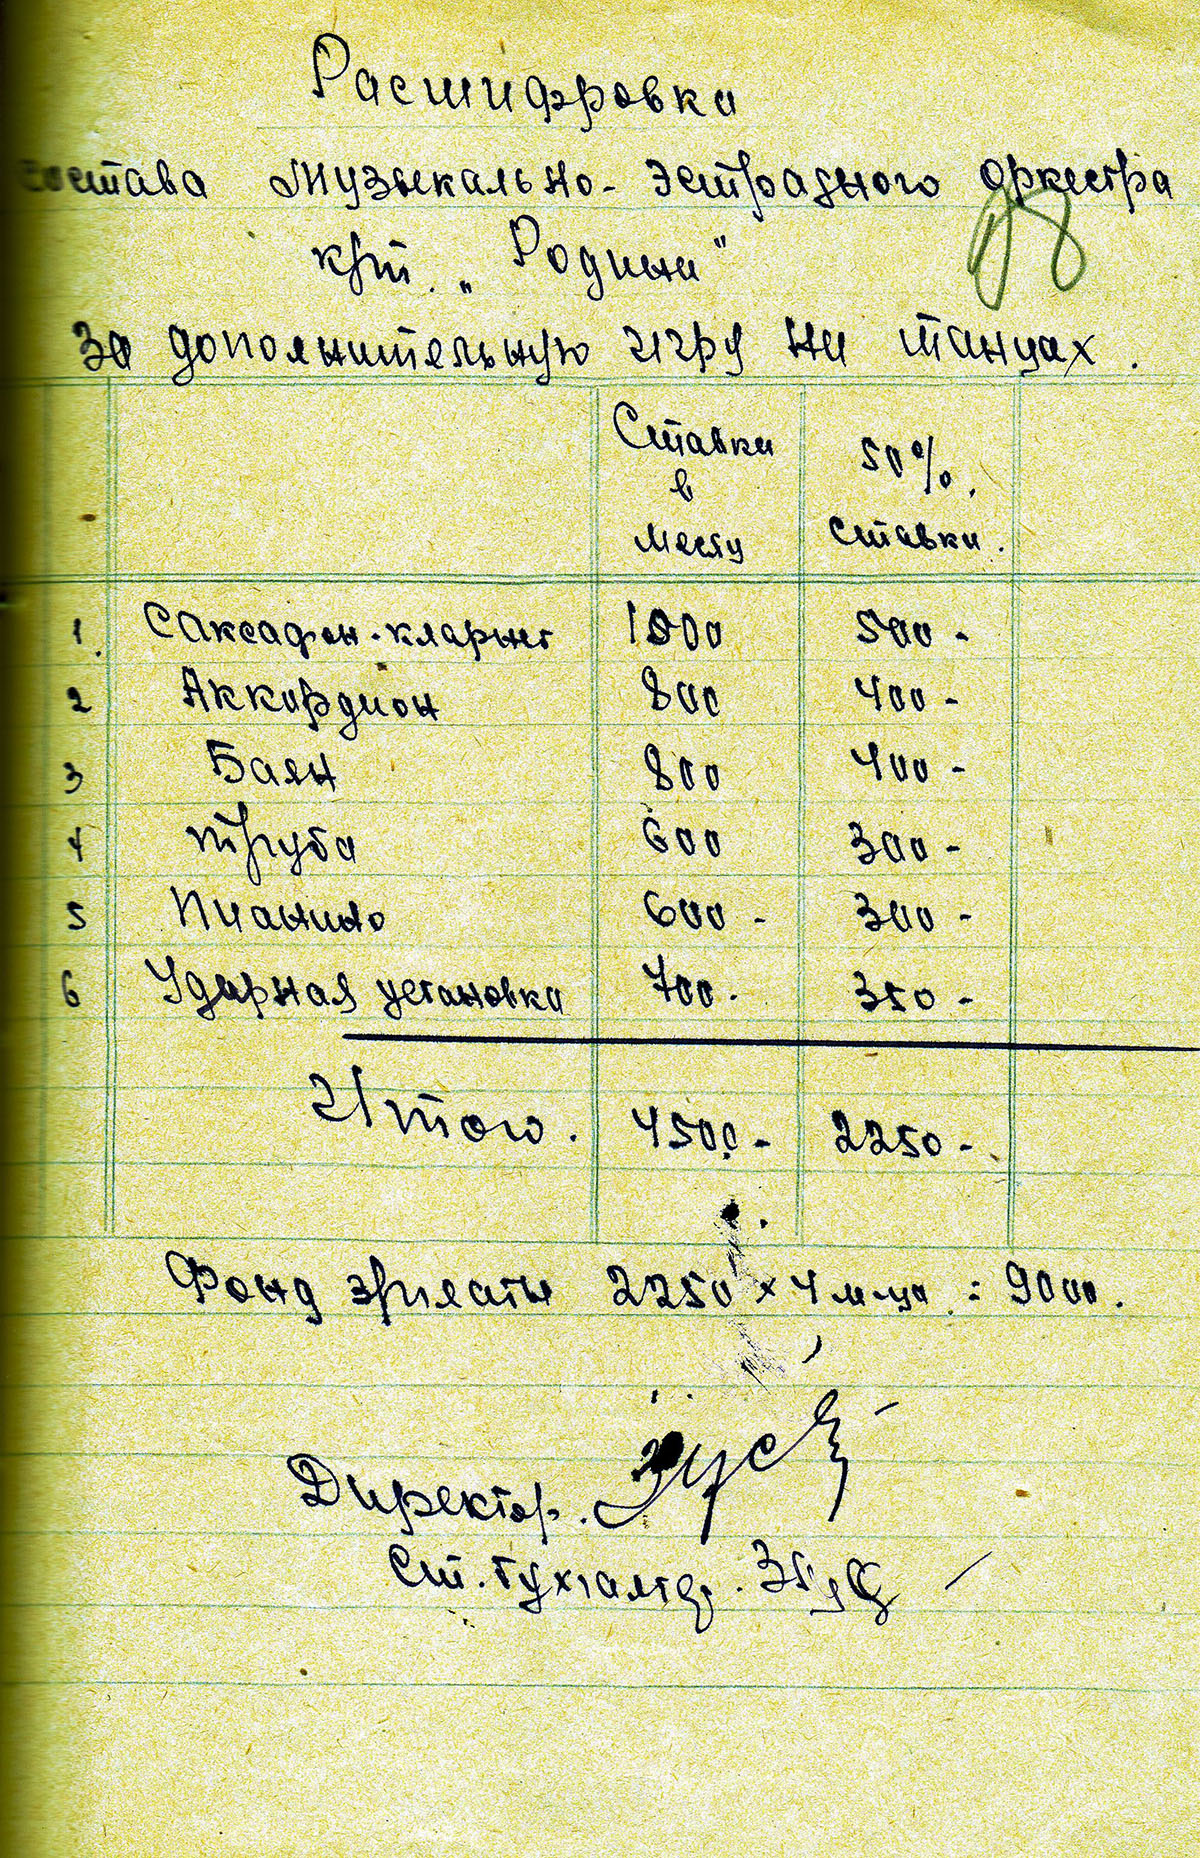 Расшифровка
состава Музыкально-эстрадного оркестра
к/т. „Родина"
За дополнительную игру на танцах.
Ставки в месяц 50% ставки.
1. Саксафон-кларнет 1000 500-
2 Аккордион 800 400-
3 Баян 800 400-
4 Труба 600 300-
5 Пианино 600- 300-
6 Ударная установка 700- 350-
Итого. 4500- 2250-
Фонд зрплаты 2250 х 4 м-ца = 9000.
Директор.
Ст. бухгалтер.